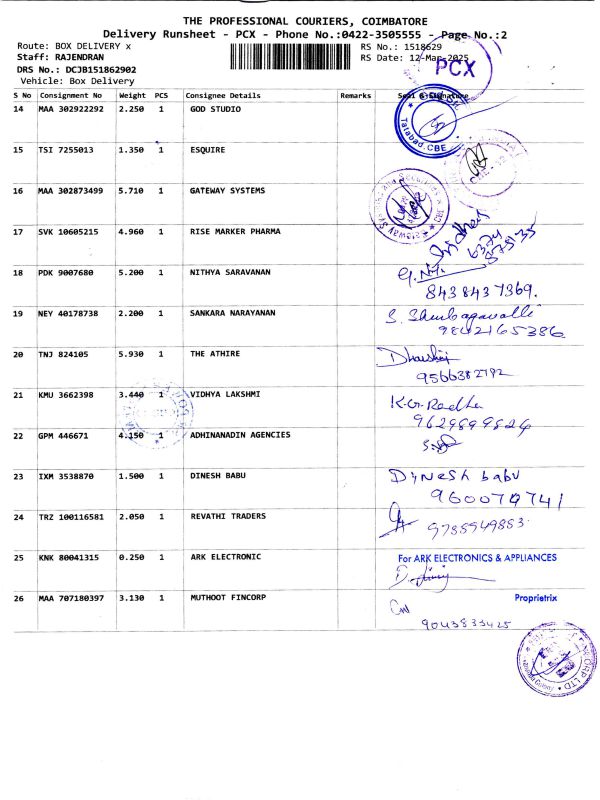 THE PROFESSIONAL COURIERS, COIMBATORE
Delivery Runsheet - PCX - Phone No.:0422-3505555 - Page No.:2
Route: BOX DELIVERY x
RS No.: 1518629
Staff: RAJENDRAN
RS Date: 12-Mar-2025
DRS No.: DCJB151862902
PCX
Vehicle: Box Delivery
S No Consignment No Weight PCS Consignee Details Remarks Seal & Signature
14 MAA 302922292 2.250 1 GOD STUDIO
Tatabad, CBE
15 TSI 7255013 1.350 1 ESQUIRE
16 MAA 302873499 5.710 1 GATEWAY SYSTEMS
17 SVK 10605215 4.960 1 RISE MARKER PHARMA
18 PDK 9007680 5.200 1 NITHYA SARAVANAN
8438437369.
19 NEY 40178738 2.200 1 SANKARA NARAYANAN S. Shenbagavalli
9842165386
20 TNJ 824105 5.930 1 THE ATHIRE
9566382792
21 KMU 3662398 3.440 1 VIDHYA LAKSHMI K.G. Radha
9629899824
22 GPM 446671 4.150 1 ADHINANADIN AGENCIES
23 IXM 3538870 1.500 1 DINESH BABU Dinesh babu
24 TRZ 100116581 2.050 1 REVATHI TRADERS
9785949883
25 KNK 80041315 0.250 1 ARK ELECTRONIC For ARK ELECTRONICS & APPLIANCES
Proprietrix
26 MAA 707180397 3.130 1 MUTHOOT FINCORP
9043833425